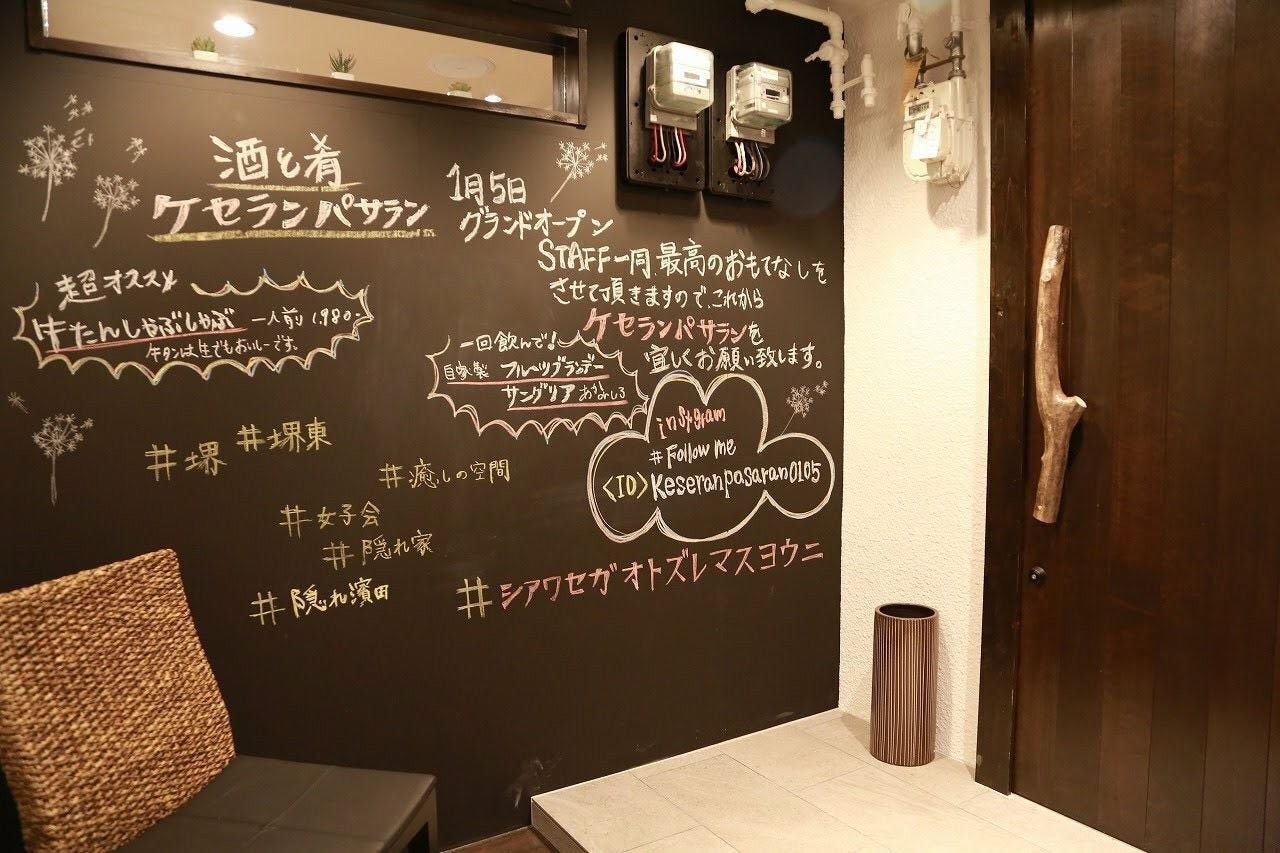 酒と肴
ケセランパサラン
1月5日
グランドオープン
STAFF一同 最高のおもてなしを
させて頂きますので、これから
ケセランパサランを
宜しくお願い致します。
超オススメ
牛たんしゃぶしゃぶ 一人前 1,980-
牛タンは生でもおいしーです。
一回飲んで!
自家製 フルーツブランデー
サングリア あか&しろ
instagram
#Follow me
<ID>Keseranpasaran0105
#堺 #堺東
#癒しの空間
#女子会
#隠れ家
#隠れ濱田
#シアワセガオトズレマスヨウニ